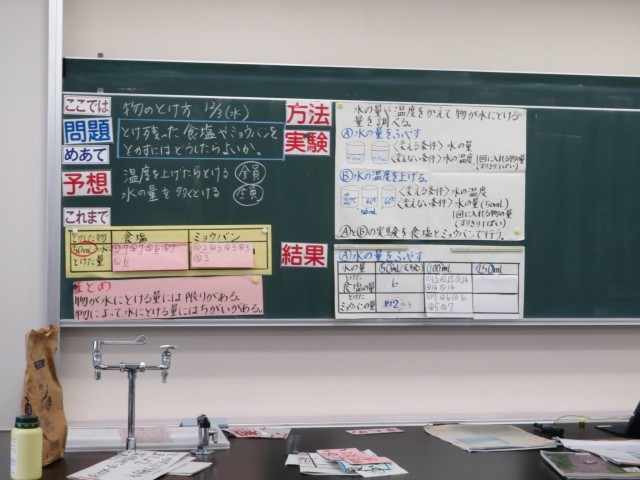 ここでは
物のとけ方 12/3(水)
問題
とけ残った食塩やミョウバンを
とかすにはどうしたらよいか。
めあて
予想
温度を上げたらとける 全員
水の量を多くとける 全員
これまで
とかした物 食塩 ミョウバン
50mL
とけた量
まとめ
物が水にとける量には限りがある。
物によって水にとける量にはちがいがある。
方法
実験
水の量や温度をかえて物が水にとける
量を調べる。
Ⓐ水の量をふやす
〈変える条件〉水の量
〈変えない条件〉水の温度
Ⓑ水の温度を上げる
〈変える条件〉水の温度
〈変えない条件〉水の量(50mL)
1回に入れる物の量
(すりきりいっぱい)
ⒶとⒷの実験を食塩とミョウバンで行う。
結果
Ⓐ水の量をふやす
水の量 50mL 100mL 150mL
とけた
食塩の量 6
とけた
ミョウバンの量